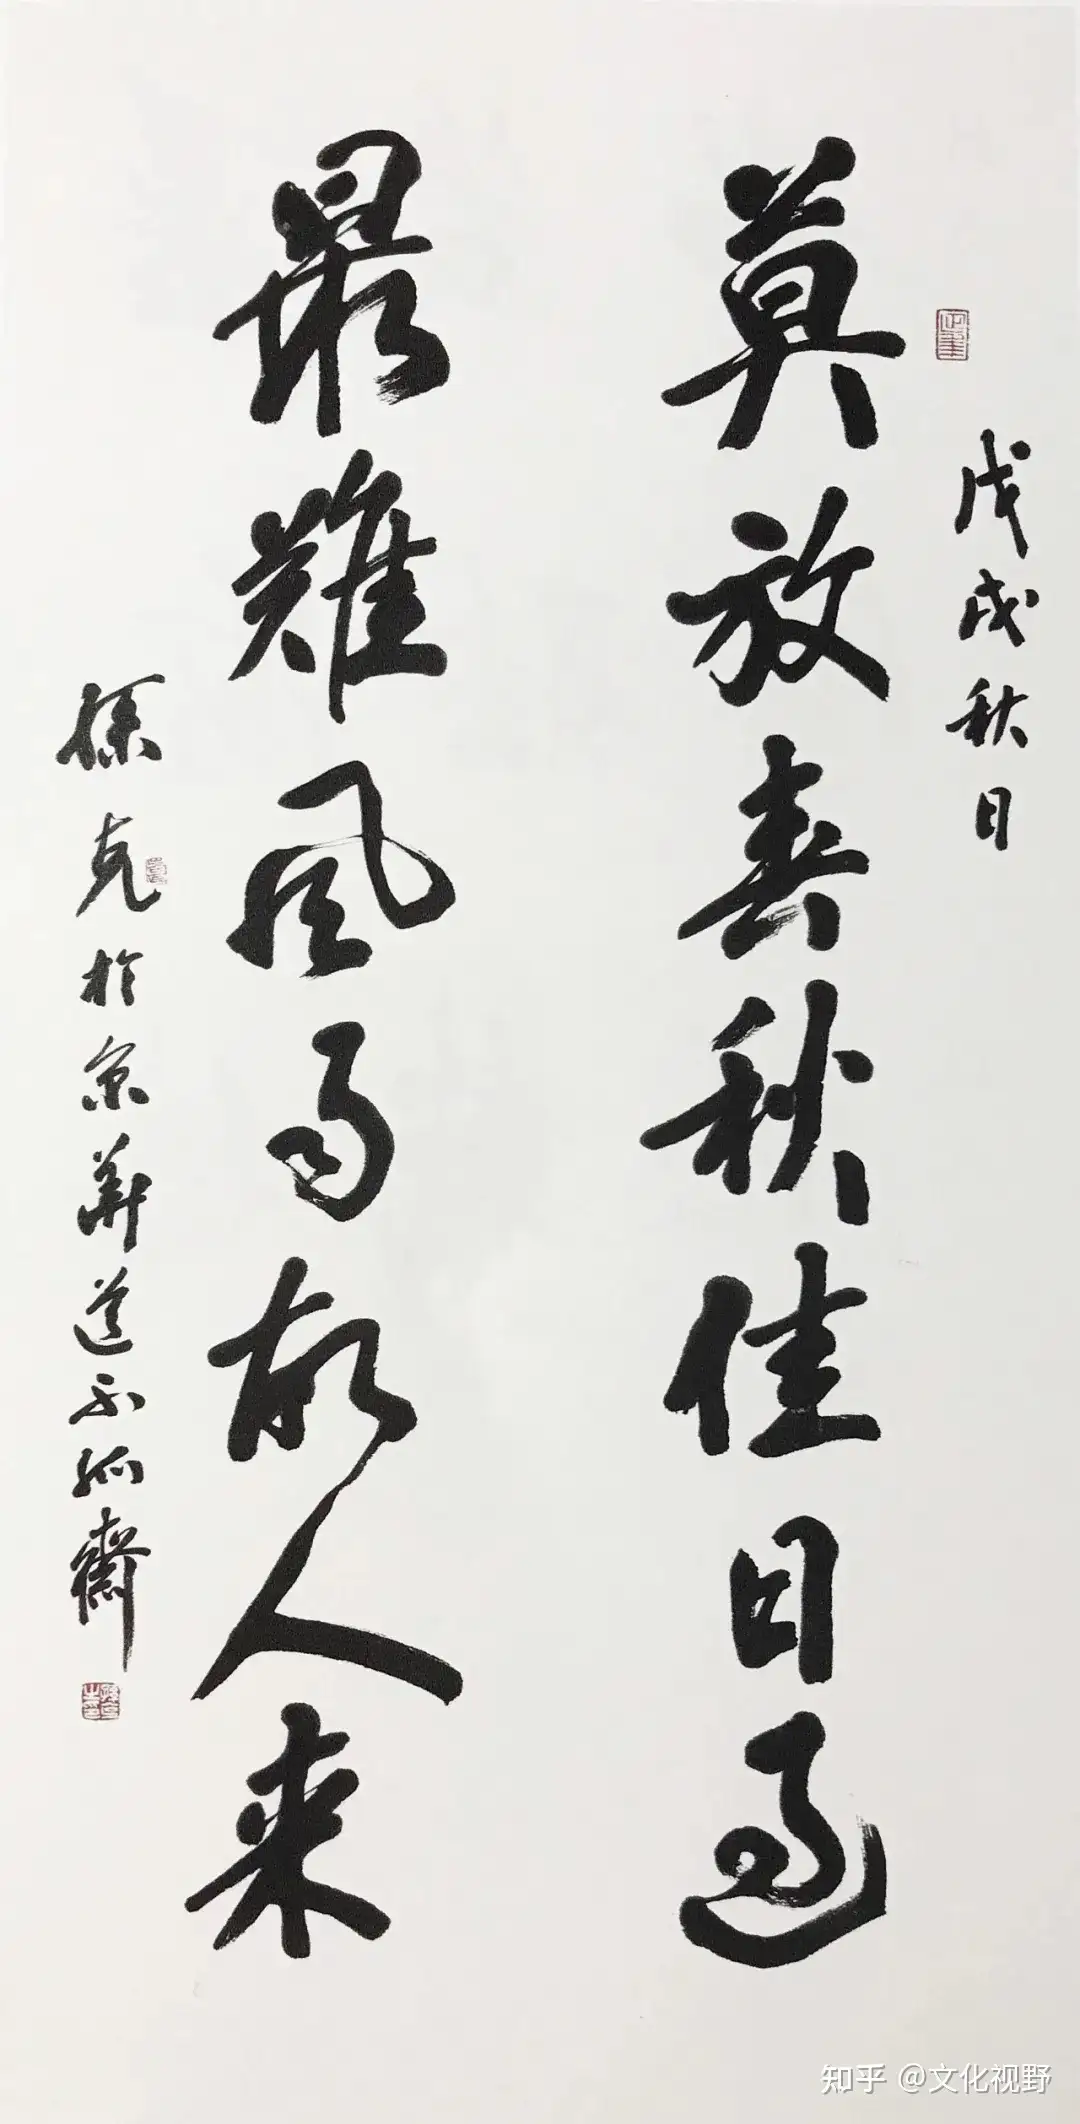 戊戌秋日
莫放春秋佳日過
最難風雨故人來
孫克於京華道不孤齋
知乎 @文化视野